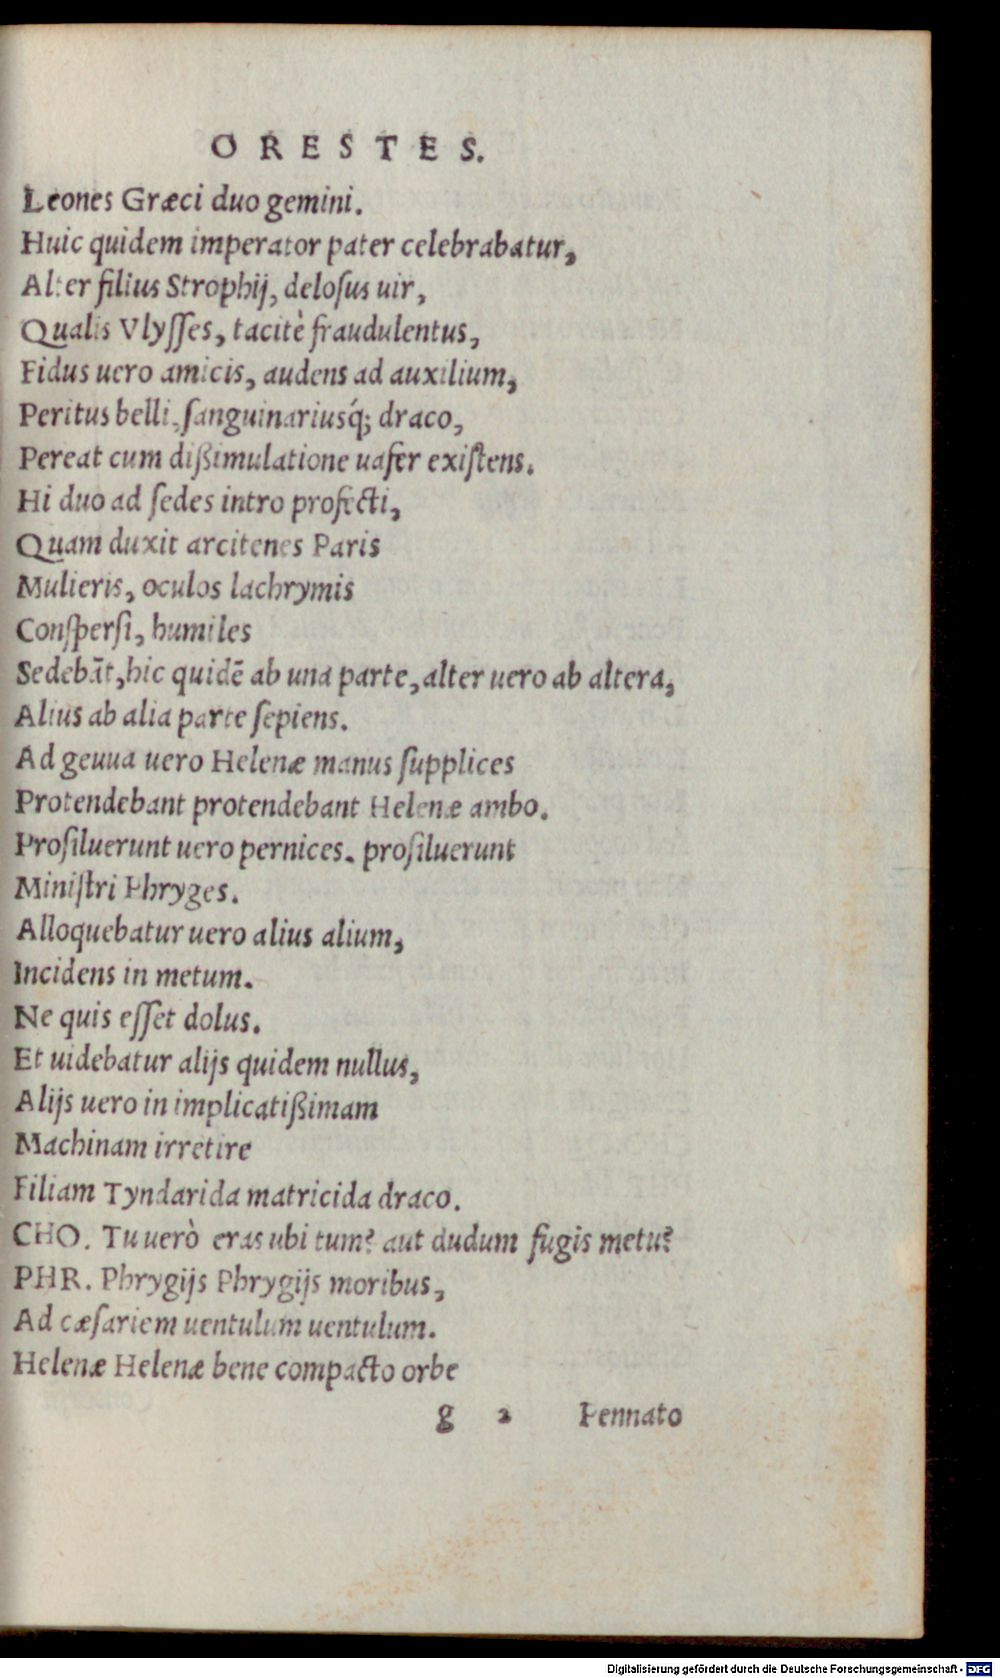 ORESTES.
Leones Græci duo gemini.
Huic quidem imperator pater celebrabatur,
Alter filius Strophij, delosus uir,
Qualis Vlysses, tacitè fraudulentus,
Fidus uero amicis, audens ad auxilium,
Peritus belli, sanguinariusq́; draco,
Pereat cum dißimulatione uafer existens.
Hi duo ad sedes intro profecti,
Quam duxit arcitenes Paris
Mulieris, oculos lachrymis
Conspersi, humiles
Sedebāt, hic quidē ab una parte, alter uero ab altera,
Alius ab alia parte sepiens.
Ad geuua uero Helenæ manus supplices
Protendebant protendebant Helenæ ambo.
Prosiluerunt uero pernices. prosiluerunt
Ministri Phryges.
Alloquebatur uero alius alium,
Incidens in metum.
Ne quis esset dolus.
Et uidebatur alijs quidem nullus,
Alijs uero in implicatißimam
Machinam irretire
Filiam Tyndarida matricida draco.
CHO. Tu uerò eras ubi tum? aut dudum fugis metu?
PHR. Phrygijs Phrygijs moribus,
Ad cæsariem uentulum uentulum.
Helenæ Helenæ bene compacto orbe
g 2 Pennato
Digitalisierung gefördert durch die Deutsche Forschungsgemeinschaft - DFG